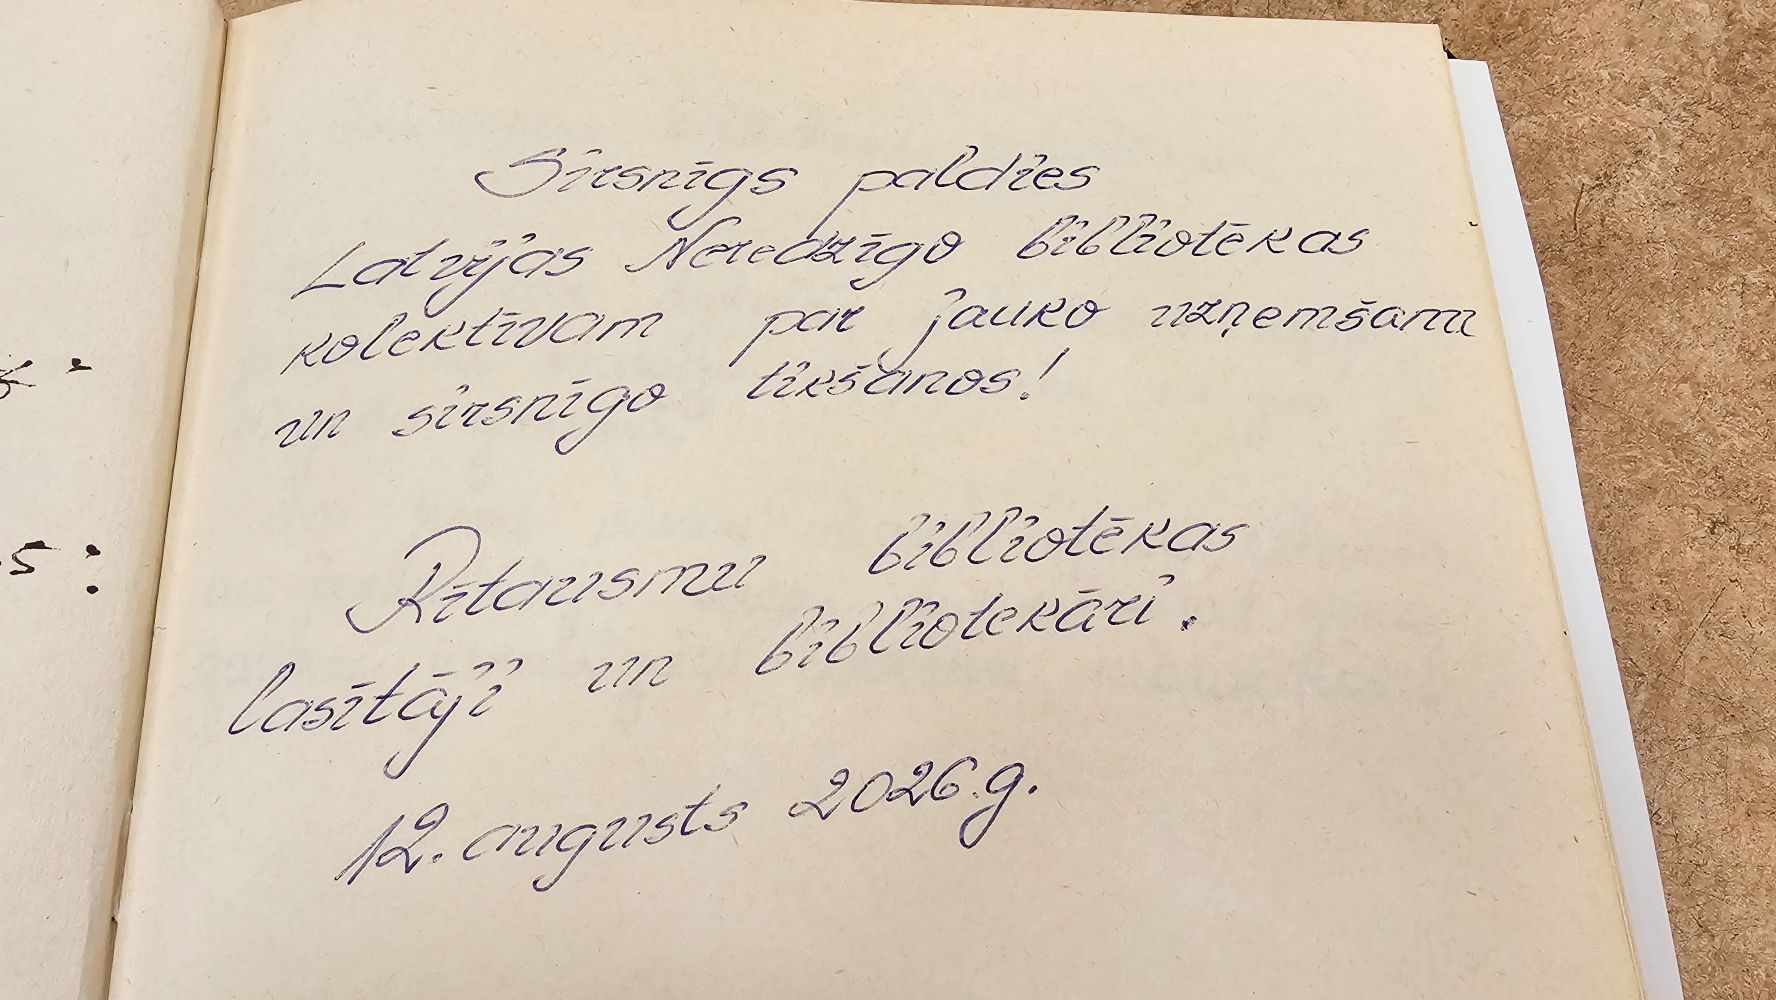 Sirsnīgs paldies
Latvijas Neredzīgo bibliotēkas
kolektīvam par jauko uzņemšanu
un sirsnīgo tikšanos!
Rītausmu bibliotēkas
lasītāji un bibliotekāri.
12. augusts 2026.g.